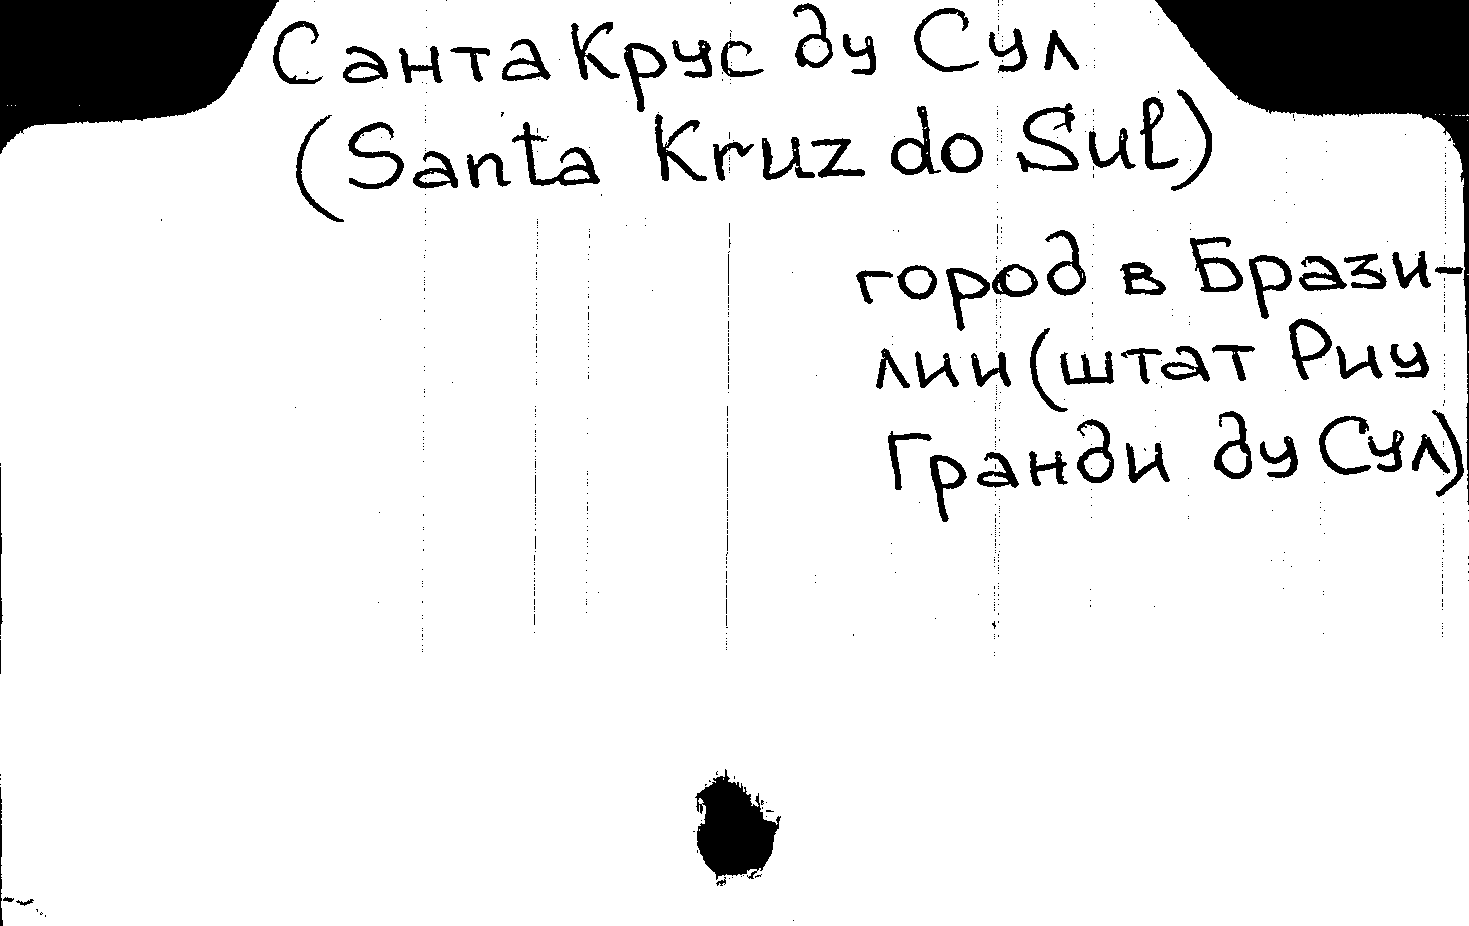 Санта Крус ду Сул
(Santa Kruz do Sul)
город в Брази-
лии (штат Риу
Гранди ду Сул)